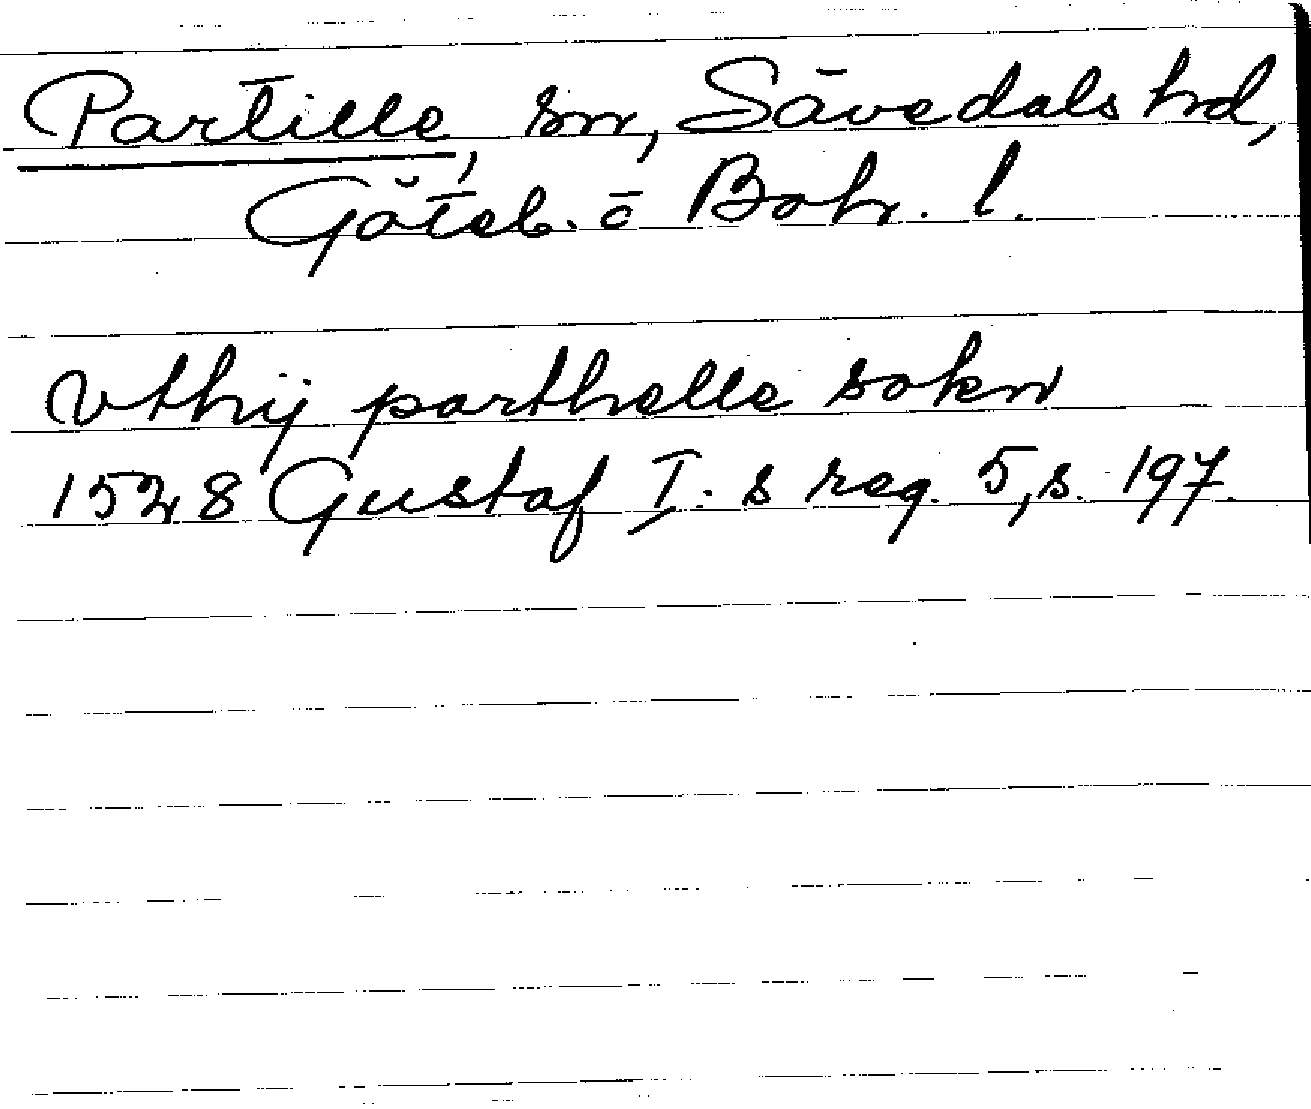 Partille, sn, Sävedals hd,
Göteb. o Boh. l.
Vthij parthelle sokn
1528 Gustaf I:s reg. 5, s. 197.